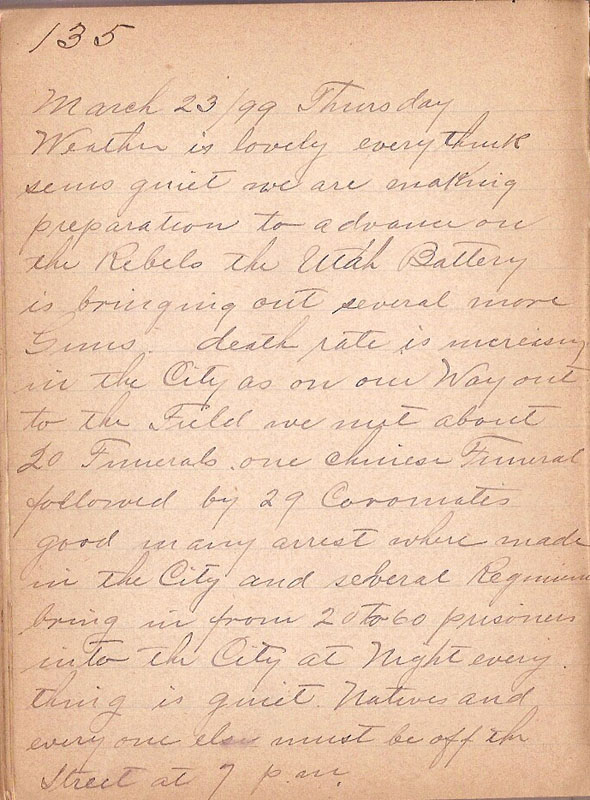 135
March 23/99 Thursday
Weather is lovely everythink
sems quiet we are making
preparation to advance on
the Rebels the Utah Battery
is bringing out several more
Guns. death rate is increasing
in the City as on our Way out
to the Field we met about
20 Funerals. one chinese Funeral
followed by 29 Coromatis
good many arrest where made
in the City and several Regimen
bring in from 20 to 60 prisoners
into the City at Night every
thing is quiet. Natives and
every one else must be off the
Street at 7 p.m.